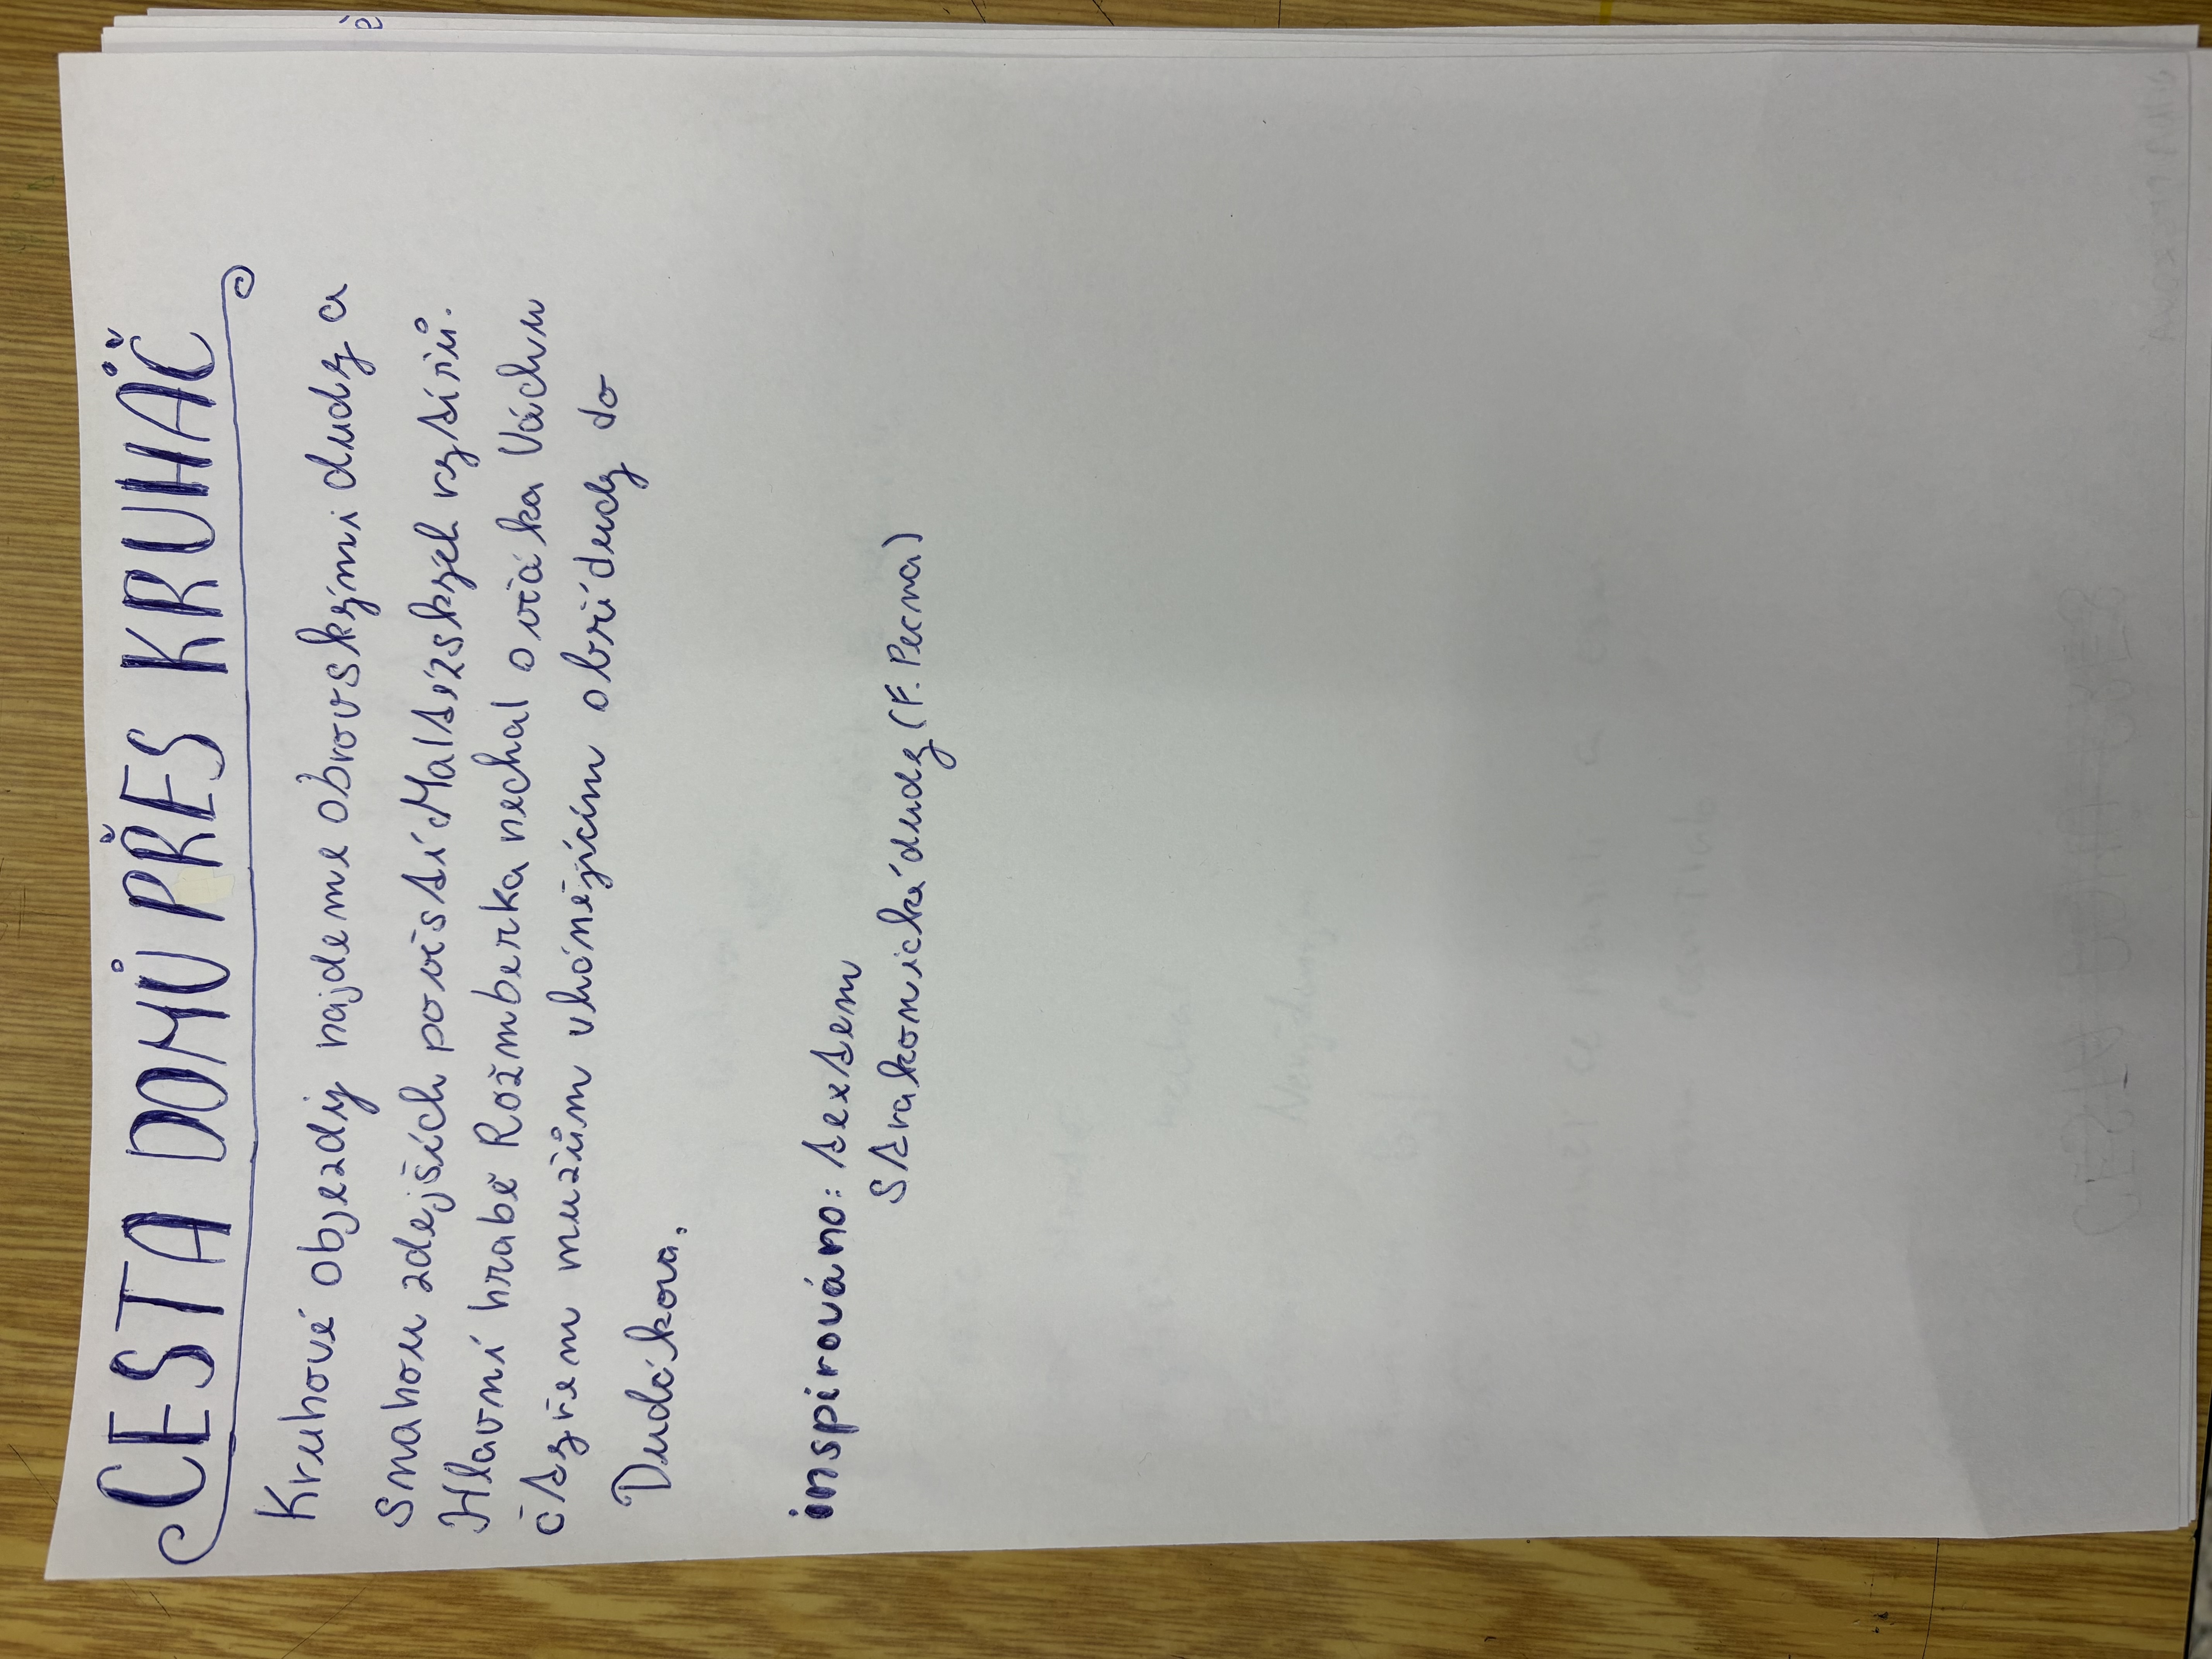 CESTA DOMŮ PŘES KRUHÁČ
Kruhové objezdy najdeme obrovskými dudy a
snahou zdejších pověstí Maltézských rytířů.
Hlavní hrabě Rožmberka nechal ovčáka Váchu
čtyřem mužům uhánějícím obří dudy do
Dudákova.
inspirováno: textem
Strakonické dudy (F. Pecna)